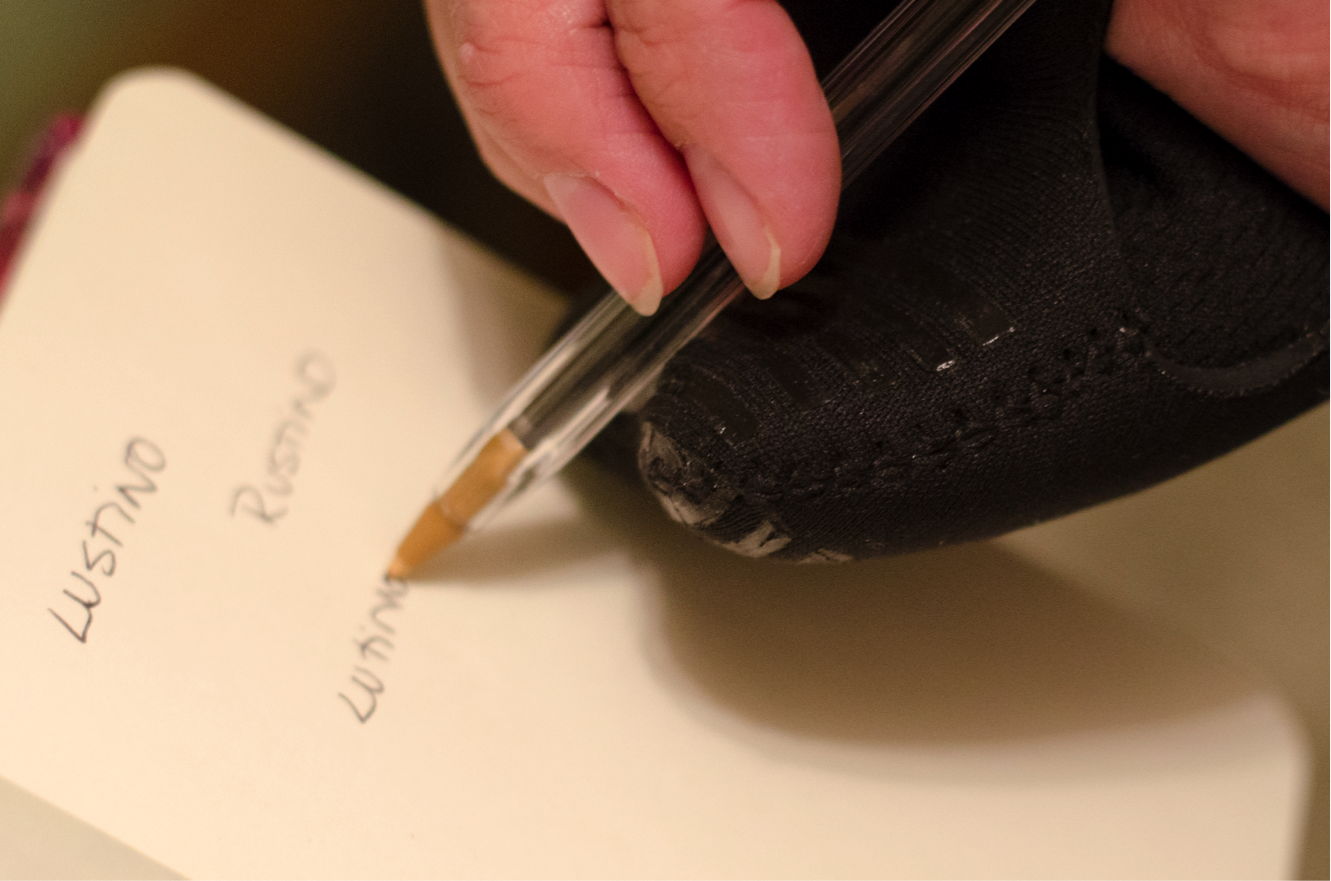 LUSTINO
RUSTINO
LUTINO